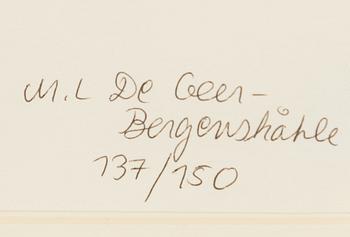 M.L De Geer-
Bergenstråhle
137/150